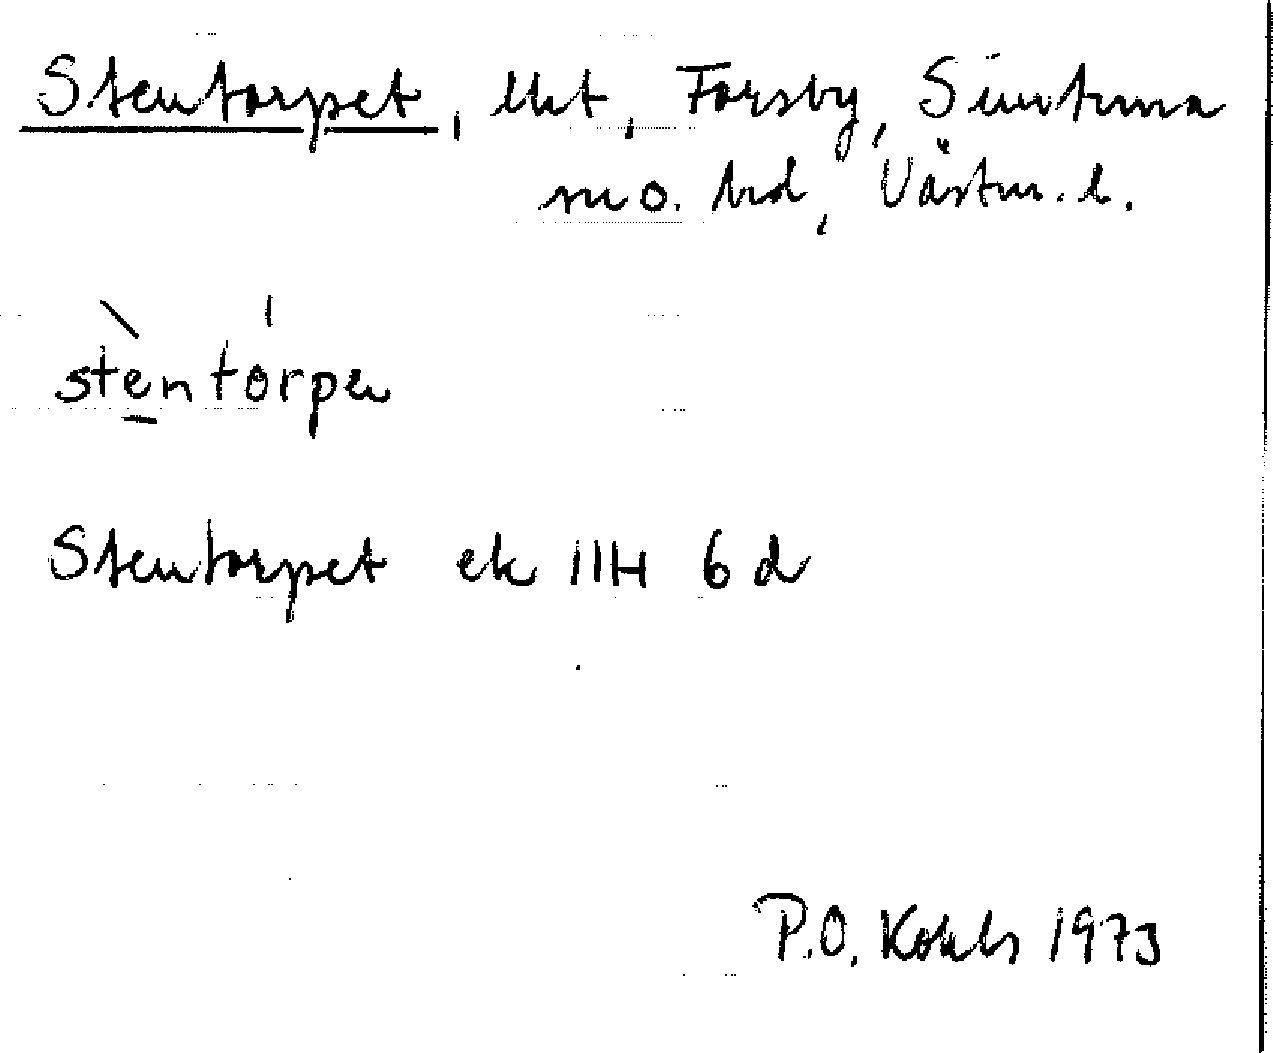 Stentorpet, lht, Forsby, Simtuna
sn o. hd, Västm. l.
stèntórpe
Stentorpet ek 11H 6d
P.O. Kohls 1973